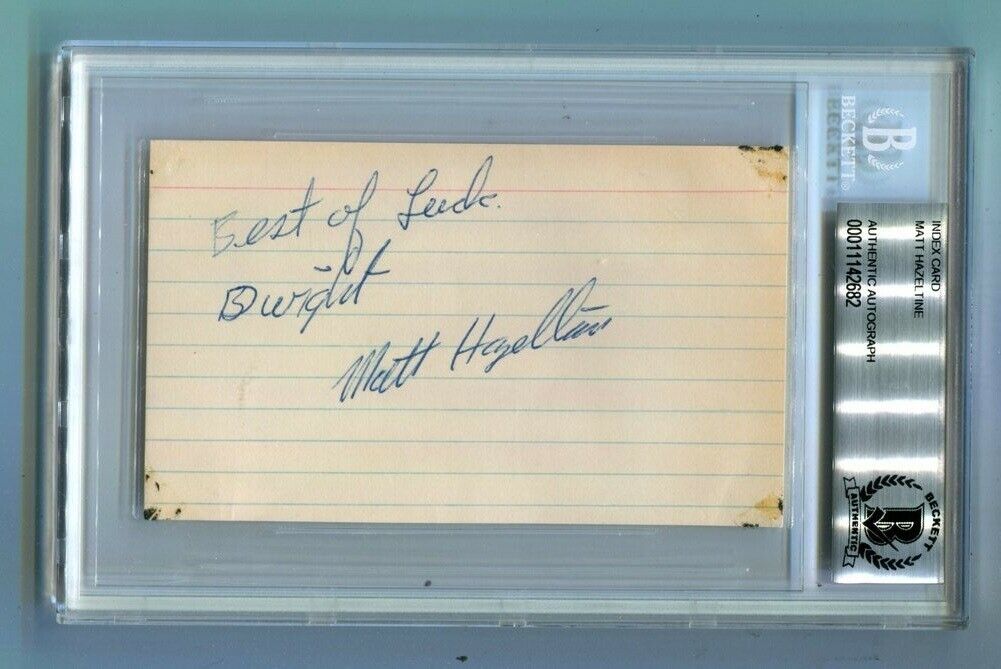 Best of Luck.
Dwight
Matt Hazeltine
BECKETT
B
BECKETT®
INDEX CARD
MATT HAZELTINE
AUTHENTIC AUTOGRAPH
00011142682
BECKETT
B
AUTHENTIC